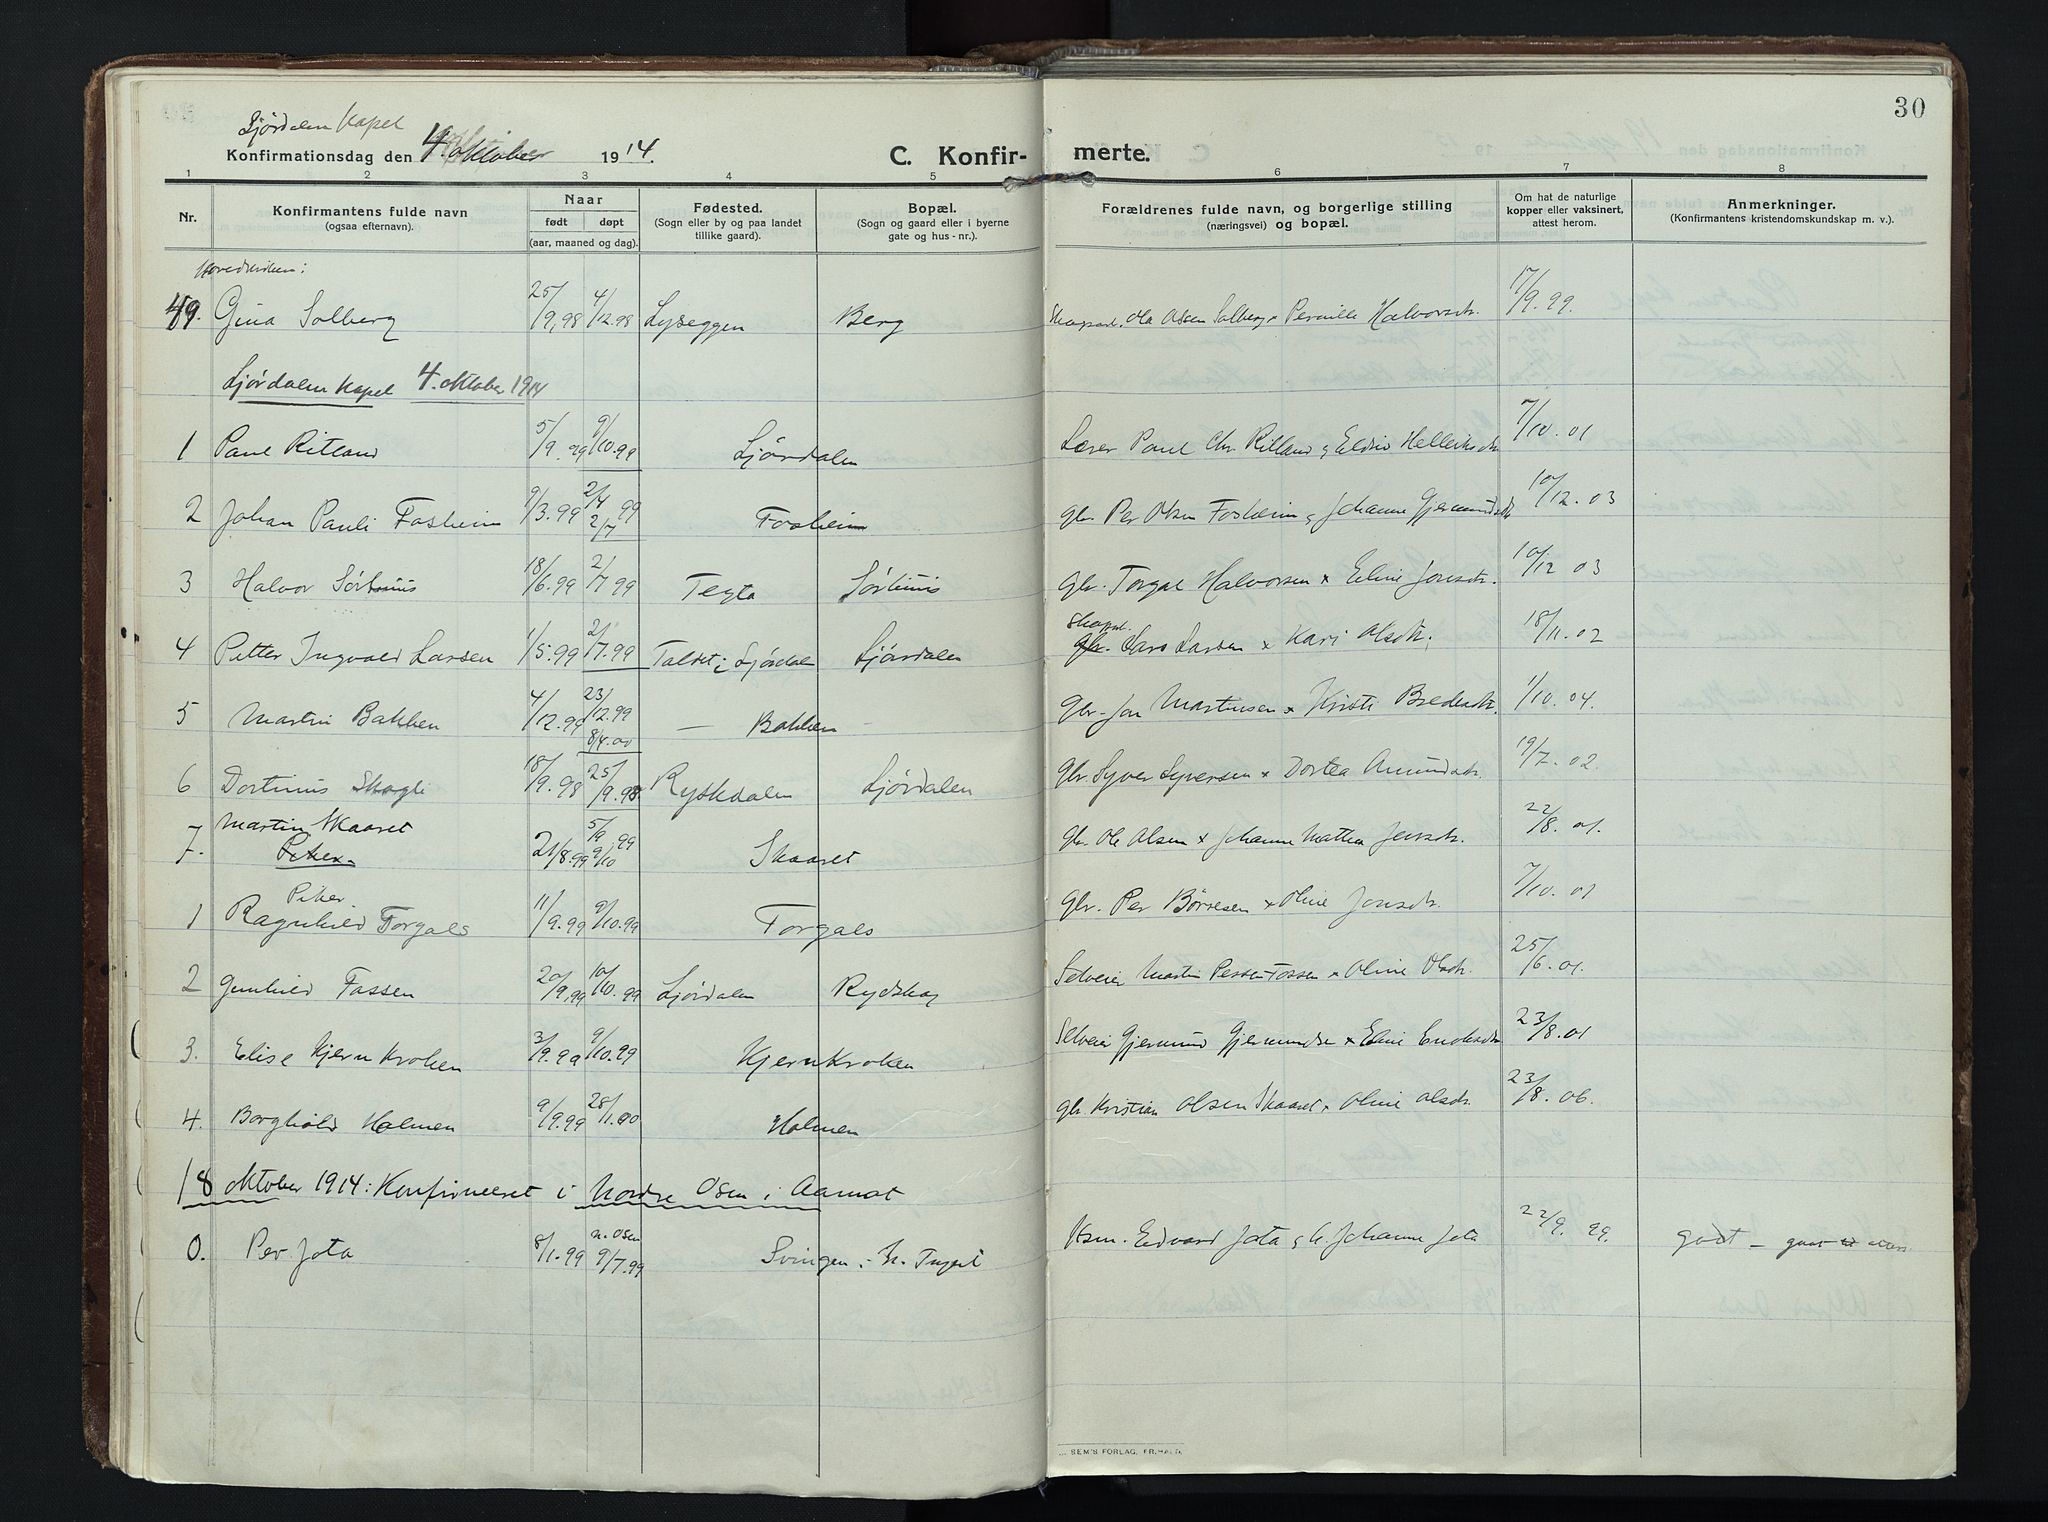 30
Ljørdalen Kapel
Konfirmationsdag den 4. oktober 1914.
C. Konfir- merte.
1 2 3 4 5 6 7 8
Nr.
Konfirmantens fulde navn
(ogsaa efternavn).
Naar
født døpt
(aar, maaned og dag).
Fødested.
(Sogn eller by og paa landet
tillike gaard).
Bopæl.
(Sogn og gaard eller i byerne
gate og hus-nr.).
Forældrenes fulde navn, og borgerlige stilling
(næringsvei) og bopæl.
Om hat de naturlige
kopper eller vaksinert,
attest herom.
Anmerkninger.
(Konfirmantens kristendomskundskap m. v.).
Hovedkirken:
49. Gina Solberg 25/9.98 4/12.98 Lyseggen Berg Ola Olsen Solberg x Pernille Halvorsdtr. 17/9.99.
Ljørdalen Kapel 4. oktober 1914
1 Paul Ritland 5/9.99 9/10.99 Ljørdalen Lærer Paul Chr. Ritland g Eldrid Helleiksdtr 7/10.01
2 Johan Pauli Fosheim 9/3.99 2/4 99 2/7 Fosheim Gbr. Per Olsen Fosheim g Johanne Gjermundsdtr 10/12.03
3 Halvor Sørhuus 18/6.99 2/7 99 Tegta Sørhuus Gbr. Torgal Halvorsen x Eline Jonsdtr. 10/12 03
4 Petter Ingvald Larsen 1/5.99 2/7.99 Taldet i Ljørdalen Ljørdalen Skogsarb. Lars Larsen x Kari Olsdtr. 18/11.02
5 Martin Bakken 4/12.99 23/12.99 8/4.00 — Bakken Gbr. Jon Martinsen x Kristi Bredesdtr. 1/10.04.
6 Dortinius Skogli 18/9.98 25/9.98 Ryskdalen Ljørdalen Gbr. Syver Syversen x Dortea Amundsdtr. 19/7.02.
7. Martin Skaaret 21/8.99 5/9.99 9/10 Skaaret Gbr. Ole Olsen x Johanne Mathea Jensdtr. 22/8.01.
Piker
Piker.
1 Ragnhild Torgals 11/9.99 9/10.99 Torgals Gbr. Per Børresen x Oline Jonsdtr. 7/10.01
2 Gunhild Fossen 20/9.99 10/10.99 Ljørdalen Rydskog Selveier Martin Persen Fossen x Oline Olsdtr. 25/6.01.
3. Elise Kjernkroken 3/9.99 9/10.99 Kjernkroken Selveier Gjermund Gjermundsen x Eline Eriksdtr 23/8.01
4. Borghild Holmen 9/9.99 28/1.00 Holmen Gbr. Kristian Olsen Skaaret x Oline Olsdtr. 23/8.06.
18 oktober 1914: Konfirmeret i Nordre Osen i Aamot
0. Per Jota 8/1.99 n. Osen 9/7.99 Svingen i N. Trysil Hsm. Edvard Jota g h. Johanne Jota 22/9.99. godt —
SEM'S FORLAG, FR.HALD.